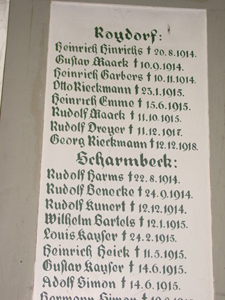 Roydorf:
Heinrich Hinrichs † 20.8.1914.
Gustav Maack † 10.9.1914.
Heinrich Garbers † 10.11.1914.
Otto Rieckmann † 23.1.1915.
Heinrich Emme † 15.6.1915.
Rudolf Maack † 11.10.1915.
Rudolf Dreyer † 11.12.1917.
Georg Rieckmann † 12.12.1918.
Scharmbeck:
Rudolf Harms † 22.8.1914.
Rudolf Benecke † 24.9.1914.
Rudolf Kunert † 12.12.1914.
Wilhelm Bartels † 12.1.1915.
Louis Kayser † 24.2.1915.
Heinrich Heick † 11.5.1915.
Gustav Kayser † 14.6.1915.
Adolf Simon † 14.6.1915.
Hermann Simon